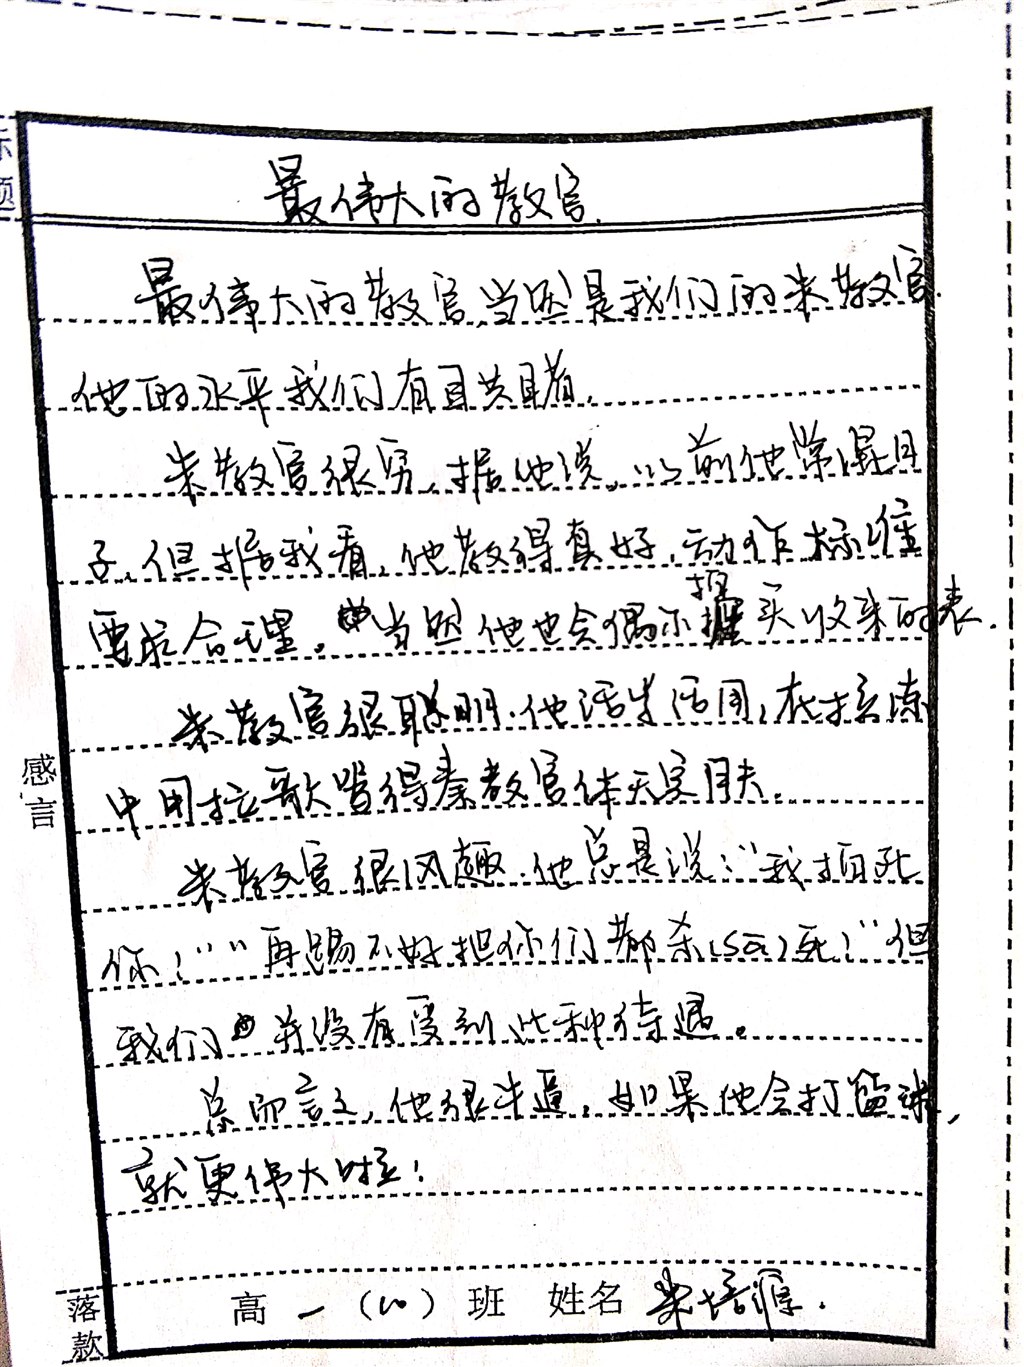 标题
最伟大的教官.
最伟大的教官,当然是我们的朱教官.
他的水平我们有目共睹.
朱教官很穷,据他说,以前他常混日
子,但据我看,他教得真好,动作标准
要求合理。当然他也会偶尔 买收来的表.
朱教官很聪明.他活学活用,在
中用拉歌 得秦教官体无完肤.
朱教官很风趣.他总是说:“我掐死
你!”“再踢不好把你们都杀(sei)死!”但
我们并没有受到此种待遇。
总而言之,他很牛逼,如果他会打篮球,
就更伟大啦!
感言
落款
高一( )班 姓名 朱培源.